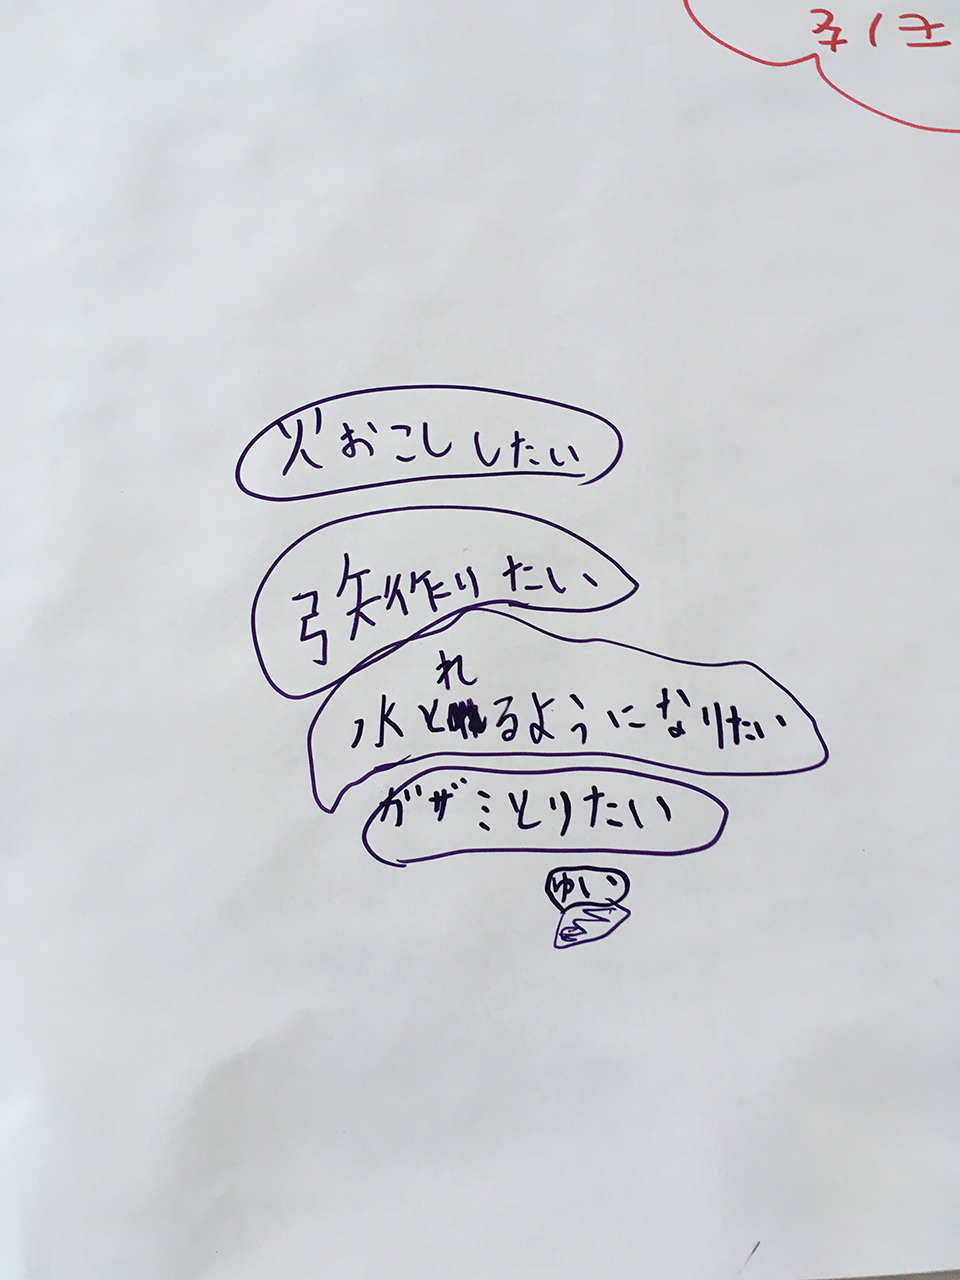 火おこししたい
弓矢作りたい
水とれるようになりたい
ガザミとりたい
ゆい